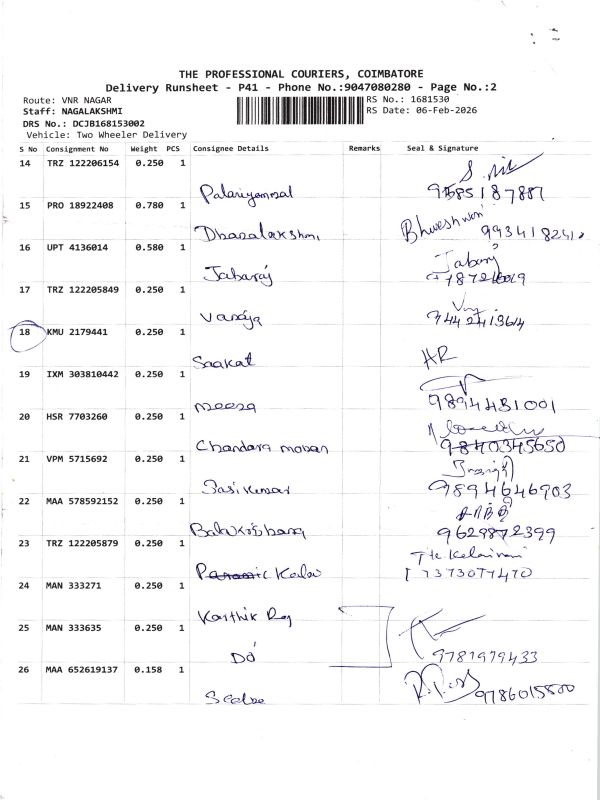 THE PROFESSIONAL COURIERS, COIMBATORE
Delivery Runsheet - P41 - Phone No.:9047080280 - Page No.:2
Route: VNR NAGAR RS No.: 1681530
Staff: NAGALAKSHMI RS Date: 06-Feb-2026
DRS No.: DCJB168153002
Vehicle: Two Wheeler Delivery
S No Consignment No Weight PCS Consignee Details Remarks Seal & Signature
14 TRZ 122206154 0.250 1
Palaniyammal
15 PRO 18922408 0.780 1
Dhanalakshmi
16 UPT 4136014 0.580 1
Jabaraj
17 TRZ 122205849 0.250 1
Vanaja
18 KMU 2179441 0.250 1
HR
19 IXM 303810442 0.250 1
Meena 9894431001
20 HSR 7703260 0.250 1
Chandara mohan 9840345650
21 VPM 5715692 0.250 1
Sasi kumar 9894646903
22 MAA 578592152 0.250 1
9629872399
23 TRZ 122205879 0.250 1
7373077470
24 MAN 333271 0.250 1
Karthik Raj
25 MAN 333635 0.250 1
Do 9781979433
26 MAA 652619137 0.158 1
9786015800